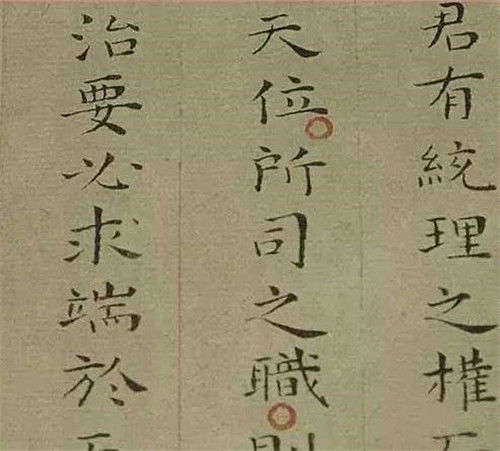 君有統理之權
天位所司之職
治要必求端於